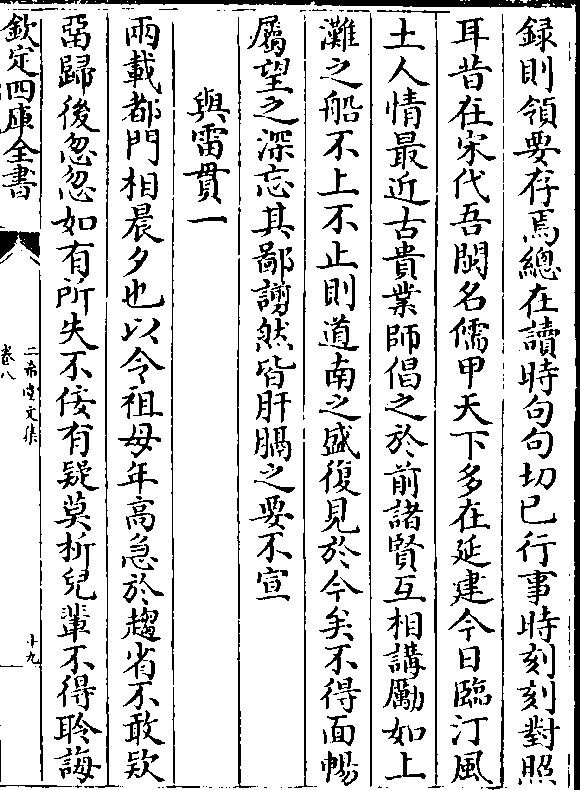 録則領要存焉總在讀時句句切已行事時刻刻對照
耳昔在宋代吾閩名儒甲天下多在延建今日臨汀風
土人情最近古貴業師倡之於前諸賢互相講勵如上
灘之船不上不止則道南之盛復見於今矣不得面暢
屬望之深忘其鄙謭然皆肝膈之要不宣
與雷貫一
兩載都門相晨夕也以令祖母年高急於趨省不敢欵
畱歸後忽忽如有所失不佞有疑莫析兒輩不得聆誨
欽定四庫全書
二希堂文集
卷八
十九